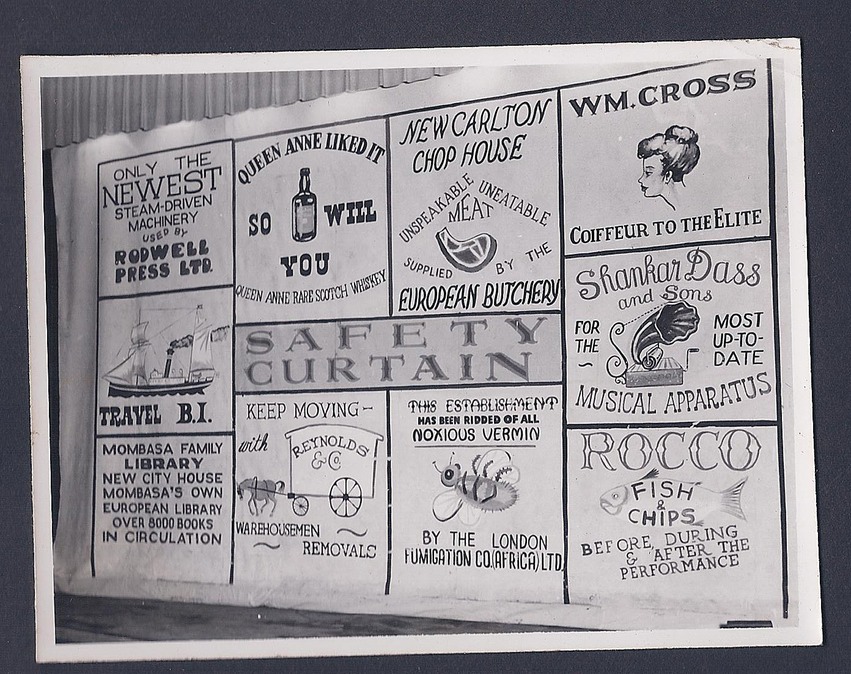 ONLY THE
NEWEST
STEAM-DRIVEN
MACHINERY
USED BY
RODWELL
PRESS LTD.
QUEEN ANNE LIKED IT
SO WILL
YOU
QUEEN ANNE RARE SCOTCH WHISKEY
NEW CARLTON
CHOP HOUSE
UNSPEAKABLE UNEATABLE
MEAT
SUPPLIED BY THE
EUROPEAN BUTCHERY
WM. CROSS
COIFFEUR TO THE ELITE
TRAVEL B.I.
SAFETY
CURTAIN
Shankar Dass
and Sons
FOR THE ~
MOST UP-TO-DATE
MUSICAL APPARATUS
MOMBASA FAMILY
LIBRARY
NEW CITY HOUSE
MOMBASA'S OWN
EUROPEAN LIBRARY
OVER 8000 BOOKS
IN CIRCULATION
KEEP MOVING-
with
REYNOLDS
& CO.
WAREHOUSEMEN ~
~ REMOVALS
THIS ESTABLISHMENT
HAS BEEN RIDDED OF ALL
NOXIOUS VERMIN
BY THE LONDON
FUMIGATION CO. (AFRICA) LTD
ROCCO
FISH
&
CHIPS
BEFORE, DURING
& AFTER THE
PERFORMANCE